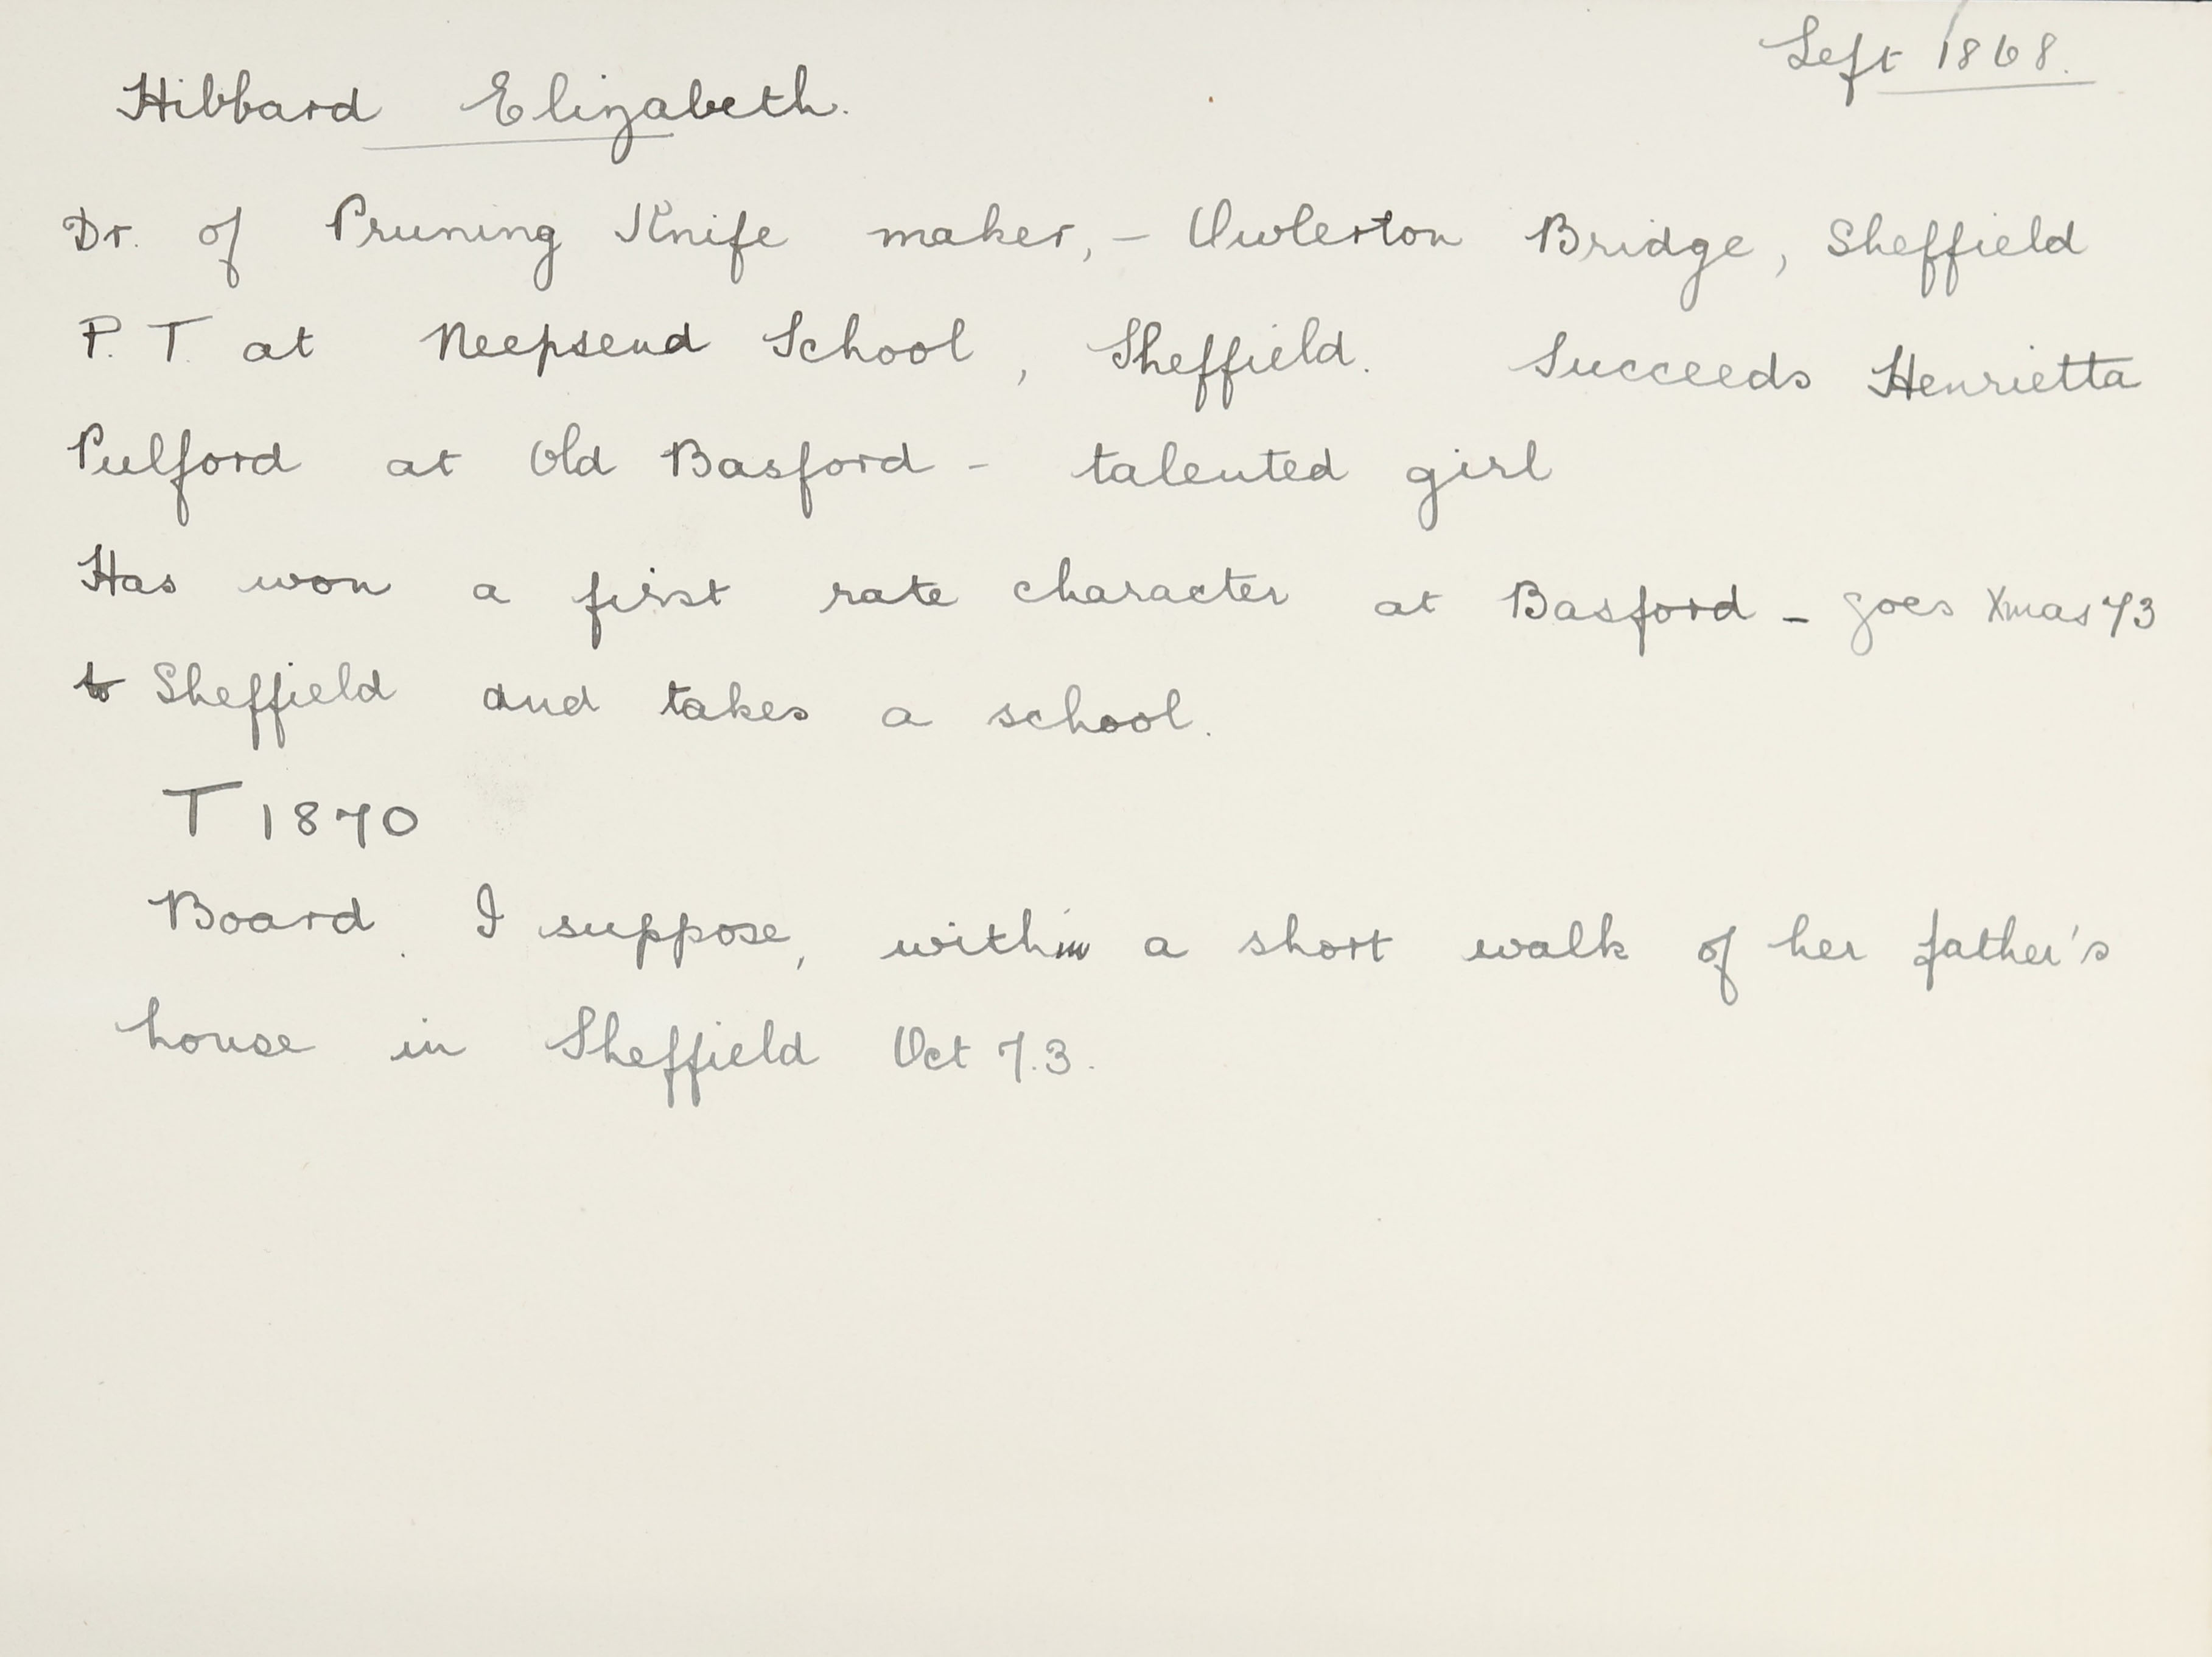 Left 1868.
Hibbard Elizabeth.
Dr. of Pruning Knife maker, - Owlerton Bridge, Sheffield
P. T. at Neepsend School, Sheffield. Succeeds Henrietta
Pulford at Old Basford - talented girl
Has won a first rate character at Basford - goes Xmas 73
to Sheffield and takes a school.
T 1870
Board. I suppose, within a short walk of her father's
house in Sheffield Oct 7.3.